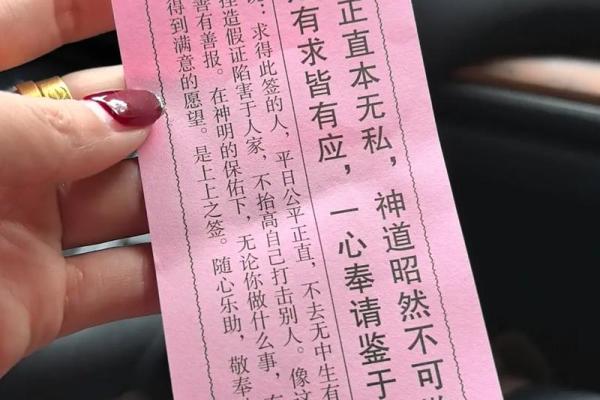 正直本无私，神道昭然不可
有求皆有应，一心奉请鉴于
：求得此签的人，平日公平正直，不去无中生有
捏造假证陷害于人家，不抬高自己打击别人。像这
善有善报。在神明的保佑下，无论你做什么事，
得到满意的愿望。是上上之签。随心乐助，敬奉